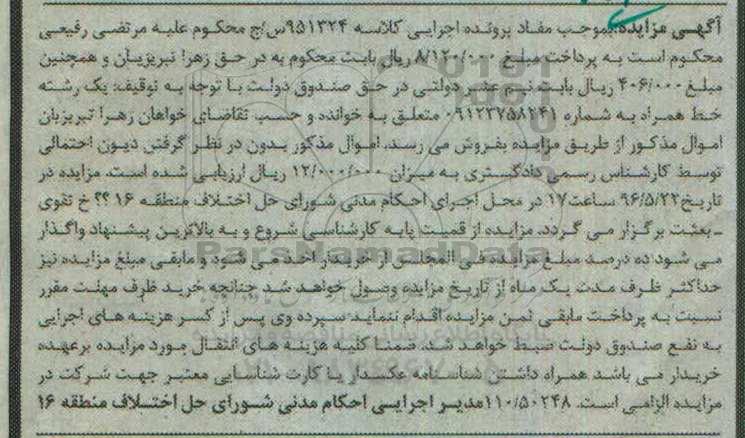 آگهی مزایده بموجب مفاد پرونده اجرایی کلاسه ۹۵۱۳۲۴س/ج محکوم علیه مرتضی رفیعی
محکوم است به پرداخت مبلغ ۸/۱۲۰/۰۰۰ ریال بابت محکوم به در حق زهرا تبریزیان و همچنین
مبلغ ۴۰۶/۰۰۰ ریال بابت نیم عشر دولتی در حق صندوق دولت با توجه به توقیف: یک رشته
خط همراه به شماره ۰۹۱۲۳۷۵۸۲۴۱ متعلق به خوانده و حسب تقاضای خواهان زهرا تبریزیان
اموال مذکور از طریق مزایده بفروش می رسد. اموال مذکور بدون در نظر گرفتن دیون احتمالی
توسط کارشناس رسمی دادگستری به میزان ۱۲/۰۰۰/۰۰۰ ریال ارزیابی شده است. مزایده در
تاریخ ۹۶/۵/۲۲ ساعت ۱۷ در محل اجرای احکام مدنی شورای حل اختلاف منطقه ۱۶ ؟؟ خ تقوی
ـ بعثت برگزار می گردد. مزایده از قمیت پایه کارشناسی شروع و به بالاترین پیشنهاد واگذار
می شود ده درصد مبلغ مزایده فی المجلس از خریدار اخذ می شود و مابقی مبلغ مزایده نیز
حداکثر ظرف مدت یک ماه از تاریخ مزایده وصول خواهد شد چنانچه خرید ظرف مهلت مقرر
نسبت به پرداخت مابقی ثمن مزایده اقدام ننماید سپرده وی پس از کسر هزینه های اجرایی
به نفع صندوق دولت ضبط خواهد شد. ضمنا کلیه هزینه های انتقال مورد مزایده برعهده
خریدار می باشد همراه داشتن شناسنامه عکسدار یا کارت شناسایی معتبر جهت شرکت در
مزایده الزامی است. ۱۱۰/۵۰۲۴۸ مدیر اجرایی احکام مدنی شورای حل اختلاف منطقه ۱۶
ParsNamadData